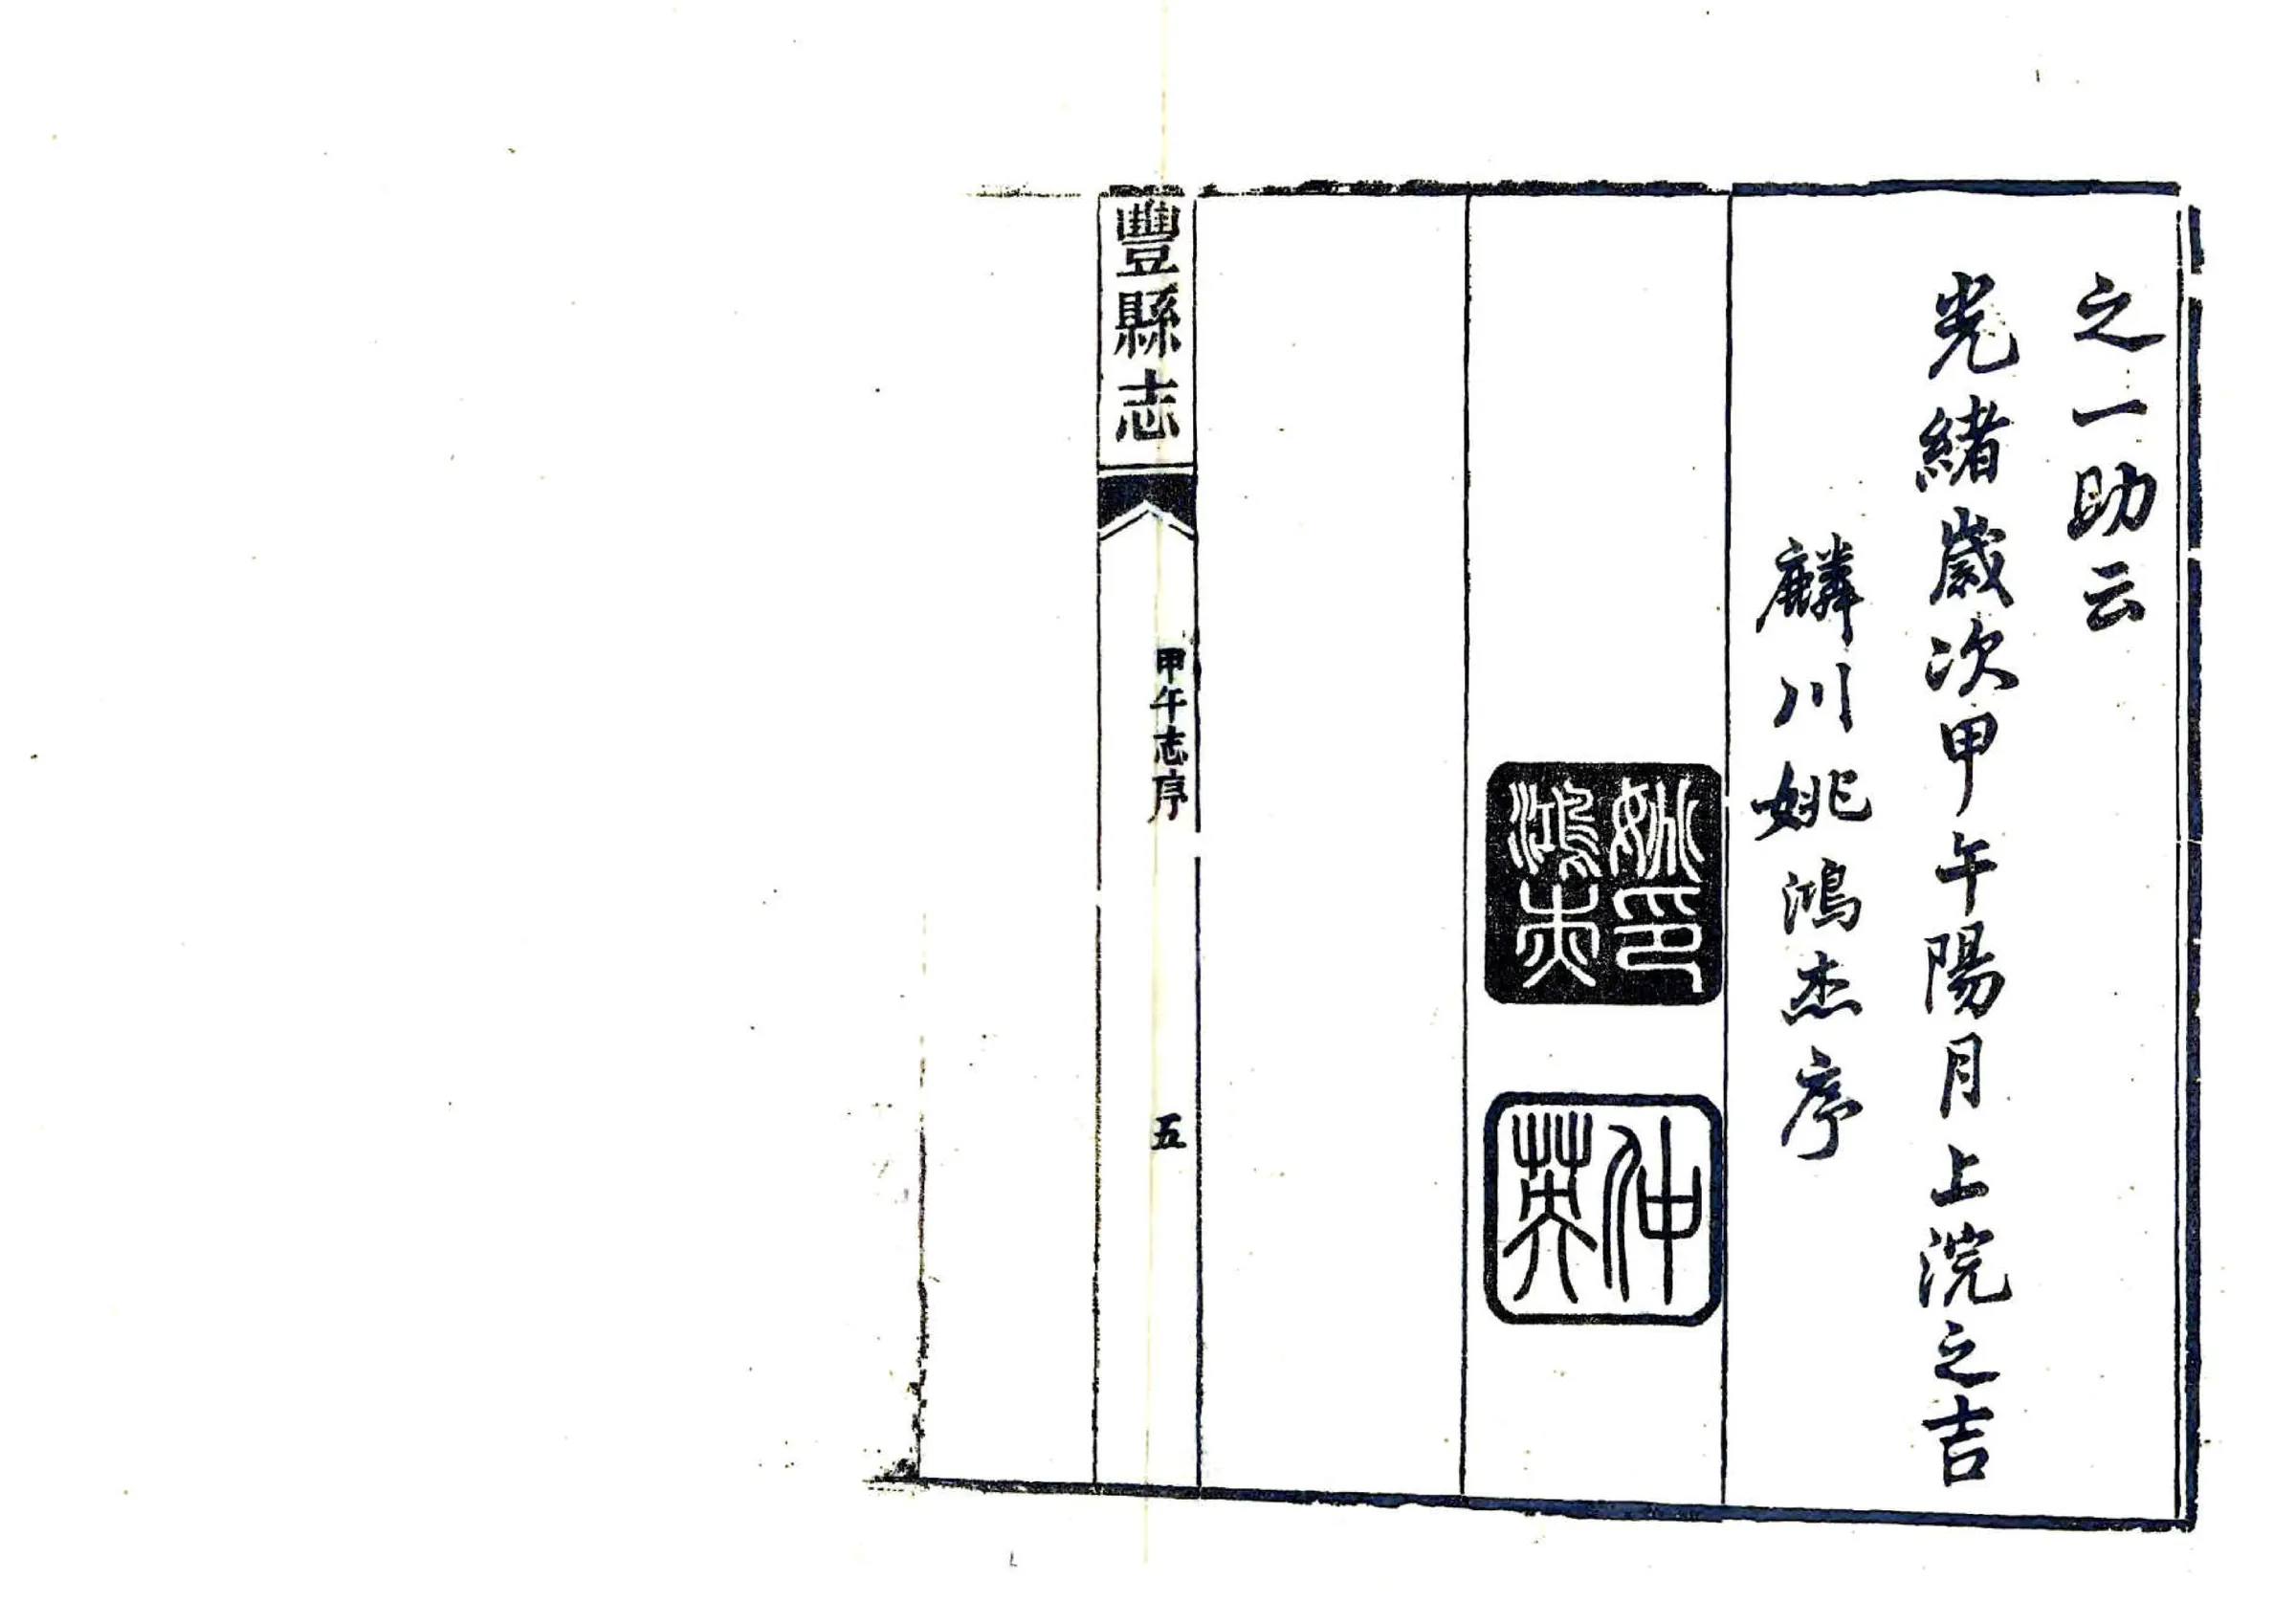 之一助云
光緒歲次甲午陽月上浣之吉
麟川姚鴻杰序
姚印鴻杰
仲英
豐縣志
甲午志序
五